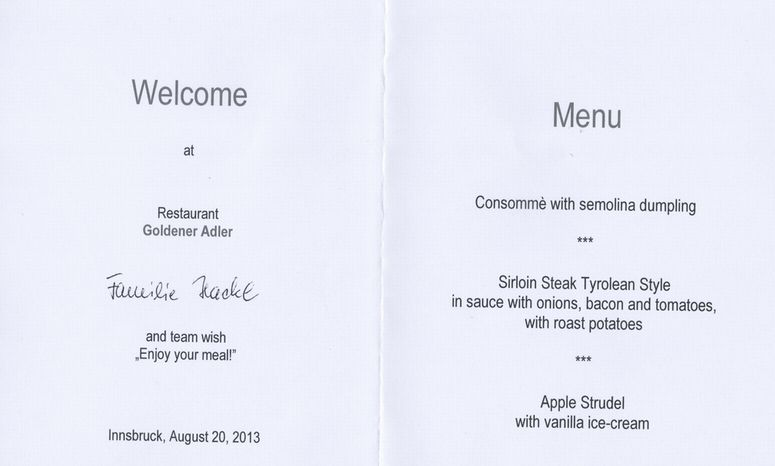 Welcome
at
Restaurant
Goldener Adler
Familie Hackl
and team wish
„Enjoy your meal!”
Innsbruck, August 20, 2013
Menu
Consommè with semolina dumpling
***
Sirloin Steak Tyrolean Style
in sauce with onions, bacon and tomatoes,
with roast potatoes
***
Apple Strudel
with vanilla ice-cream